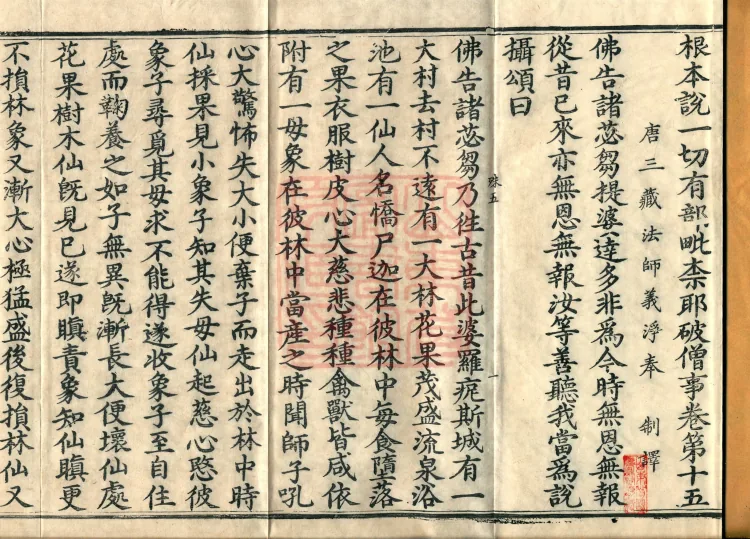 根本說一切有部毗柰耶破僧事卷第十五
唐三藏法師義淨奉 制譯
佛告諸苾芻提婆達多非爲今時無恩無報
從昔已來亦無恩無報汝等善聽我當爲說
攝頌曰
佛告諸苾芻乃往古昔此婆羅痆斯城有一
大村去村不遠有一大林花果茂盛流泉浴
池有一仙人名憍尸迦在彼林中每食墮落
之果衣服樹皮心大慈悲種種禽獸皆咸依
附有一母象在彼林中當産之時聞師子吼
心大驚怖失大小便棄子而走出於林中時
仙採果見小象子知其失母仙起慈心愍彼
象子尋覓其母求不能得遂收象子至自住
處而鞠養之如子無異旣漸長大便壞仙處
花果樹木仙旣見已遂即瞋責象知仙瞋更
不損林象又漸大心極猛盛後復損林仙又